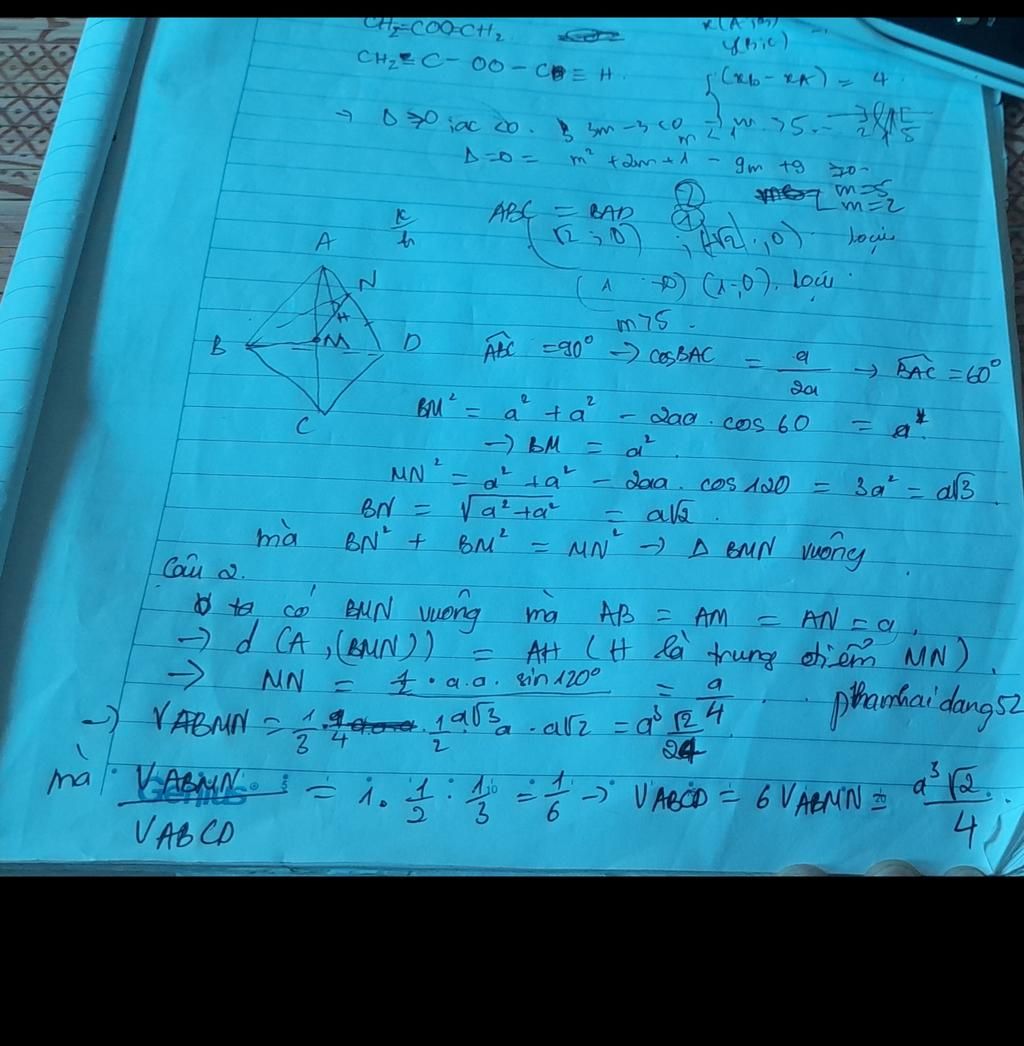 CH₂=COO=CH₂
CH₂=C-OO-C≡H
y(B;C)
{(xb-xA) = 4
→ Δ≥0 ; ac <0. 3m-3<0 m>5.
Δ=0 = m² + 2m+1 - 9m +9 ≥0
m=5
m=2
② ①
ABC = BAD
k/h
(√2 ; 0) ; (√2 ; 0) loại
(1 ; 0) (1;0). loại
m>5.
A
N
H
B
M
D
C
ABC = 90° → cosBAC = a/2a → BAC = 60°
BM² = a² + a² - 2aa. cos 60 = a²
→ BM = a²
MN² = a² + a² - 2aa. cos 120 = 3a² = a√3
BN = √a²+a² = a√2.
mà BN² + BM² = MN² → Δ BMN vuông
Câu 2.
ta có BMN vuông mà AB = AM = AN = a
→ d (A,(BMN)) = AH (H là trung điểm MN)
→ MN = ½ . a.a. sin 120° = a/4 . phamhaidang52
→ VABMN = 1/3 . 1/2 a√3 a . a√2 = a³√2/24
mà VABMN/VABCD = 1. 1/2 : 1/3 = 1/6 → VABCD = 6 VABMN = a³√2/4
Genius